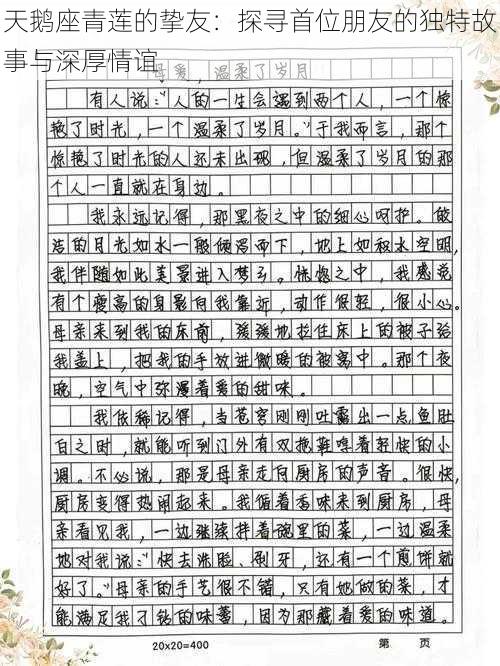 天鹅座青莲的挚友：探寻首位朋友的独特故
事与深厚情谊
母爱，温柔了岁月
有人说：“人的一生会遇到两个人，一个惊
艳了时光，一个温柔了岁月。”于我而言，那个
惊艳了时光的人还未出现，但温柔了岁月的那
个人一直就在身边。
我永远记得，那黑夜之中的细心呵护。皎
洁的月光如水一般倾泻而下，地上如积水空明，
我伴随如此美景进入梦乡。恍惚之中，我感觉
有个瘦高的身影向我靠近，动作很轻，很小心。
母亲来到我的床前，缓缓地拉住床上的被子给
我盖上，把我的手放进微暖的被窝中。那个夜
晚，空气中弥漫着爱的甜味。
我依稀记得，当苍穹刚刚吐露出一点鱼肚
白之时，就能听到门外有双拖鞋哼着轻快的小
调。不必说，那是母亲走向厨房的声音。很快，
厨房变得热闹起来。我循着香味来到厨房，母
亲看见我，一边继续拌着碗里的菜，一边温柔
地对我说：“快去洗脸、刷牙，还有一个煎饼就
好了。”母亲的手艺很不错，只有她做的菜，才
能满足我刁钻的味蕾，因为那藏着爱的味道。
20×20=400
第 页